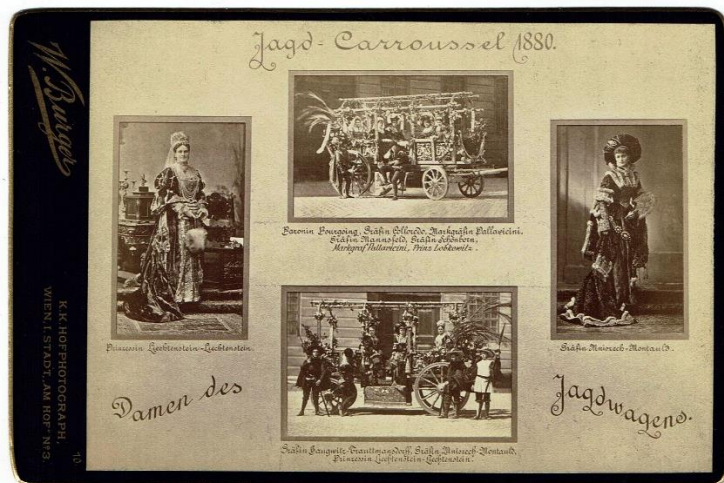 Jagd-Carroussel 1880.
W. Burger
K.K. HOFPHOTOGRAPH.
WIEN, I. STADT, "AM HOF" No 3.
10
Baronin Bourgoing, Gräfin Colloredo, Markgräfin Pallavicini,
Gräfin Mannsfeld, Gräfin Schönborn,
Markgraf Pallavicini, Prinz Lobkowitz.
Prinzessin Liechtenstein-Liechtenstein.
Gräfin Mniszech-Montauld.
Damen des
Jagdwagens.
Gräfin Haugwitz-Trauttmansdorff, Gräfin Mniszech-Montauld,
Prinzessin Liechtenstein-Liechtenstein.